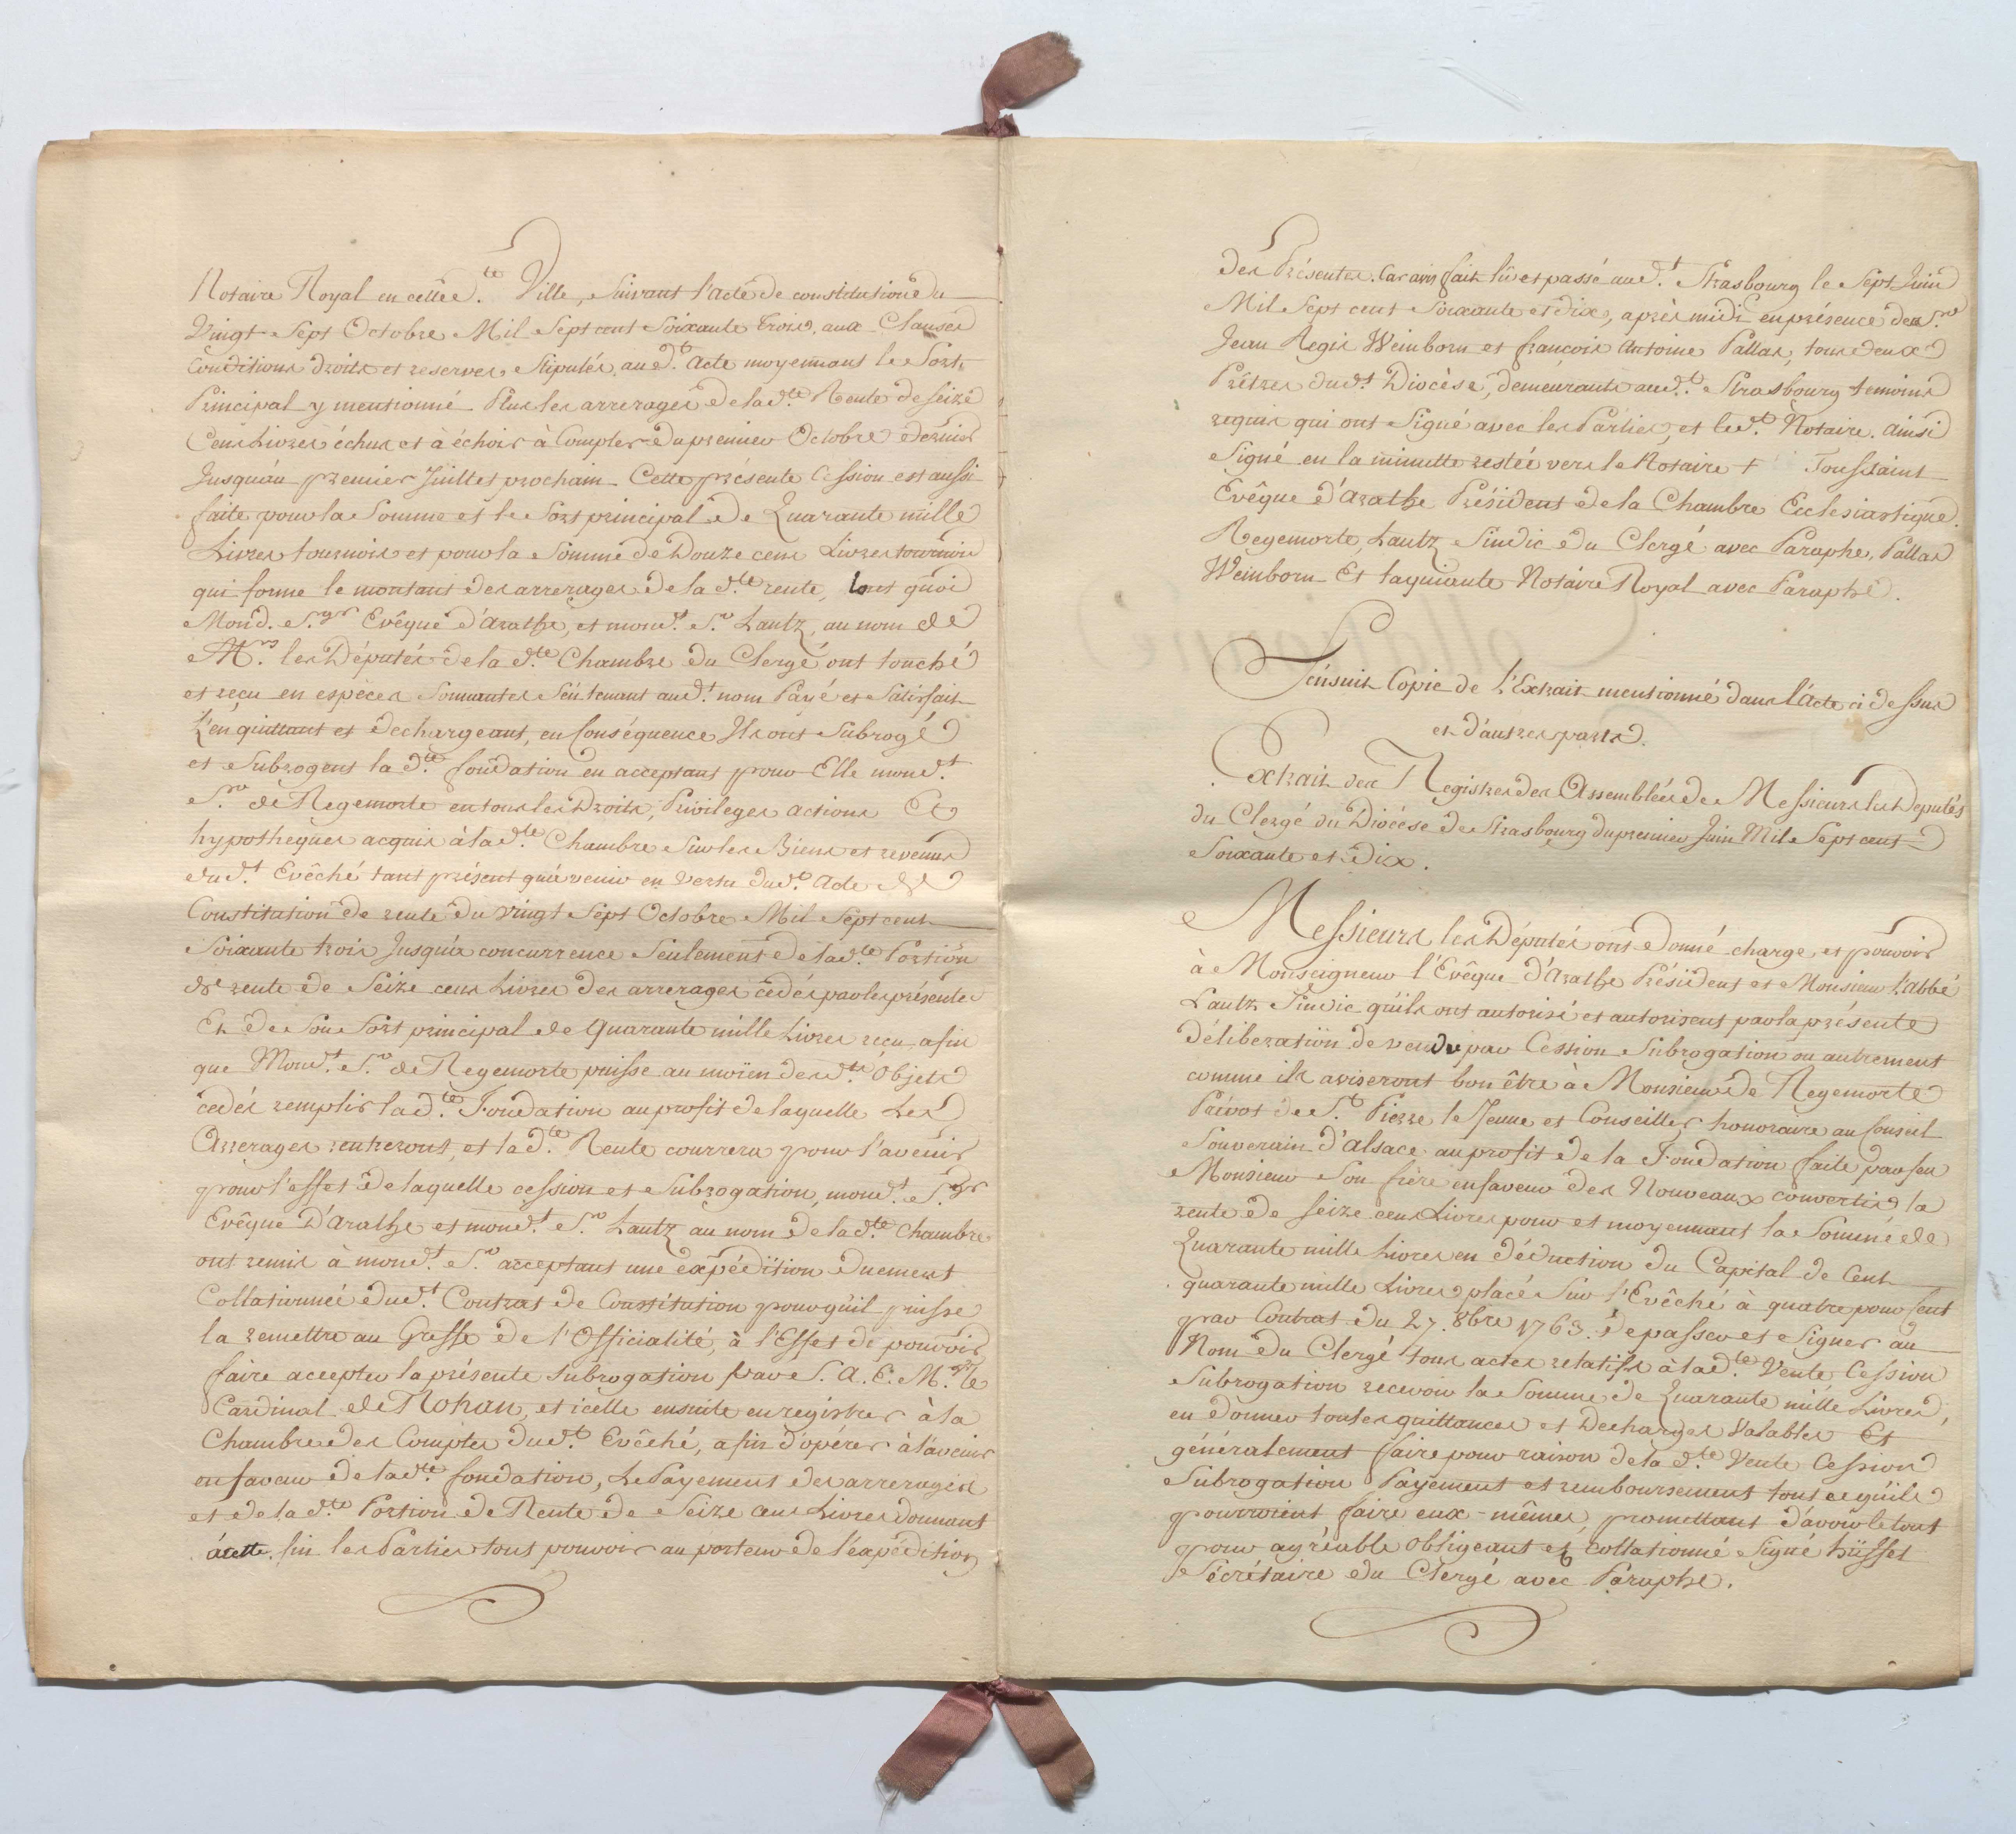 Notaire Royal en cettee d.te Ville, suivant l'acte de constitution du
Vingt Sept Octobre Mil Sept cent Soixante Trois, aux Clauses
Conditions droits et reserves Stipulés aud.t Acte moyennant le Sort
Principal y mentionné. Plus les arrerages de lad.te Rente de seize
Cens Livres échus et à échoir à Compter du premier Octobre dernier
Jusqu'au premier Juillet prochain. Cette présente Cession est aussi
faite pour la Somme et le Sort principal de Quarante mille
Livres tournois et pour la Somme de Douze cens Livres tournois
qui forme le montant des arrerages de la d.te rente, tout quoi
Mond. S.gr Evêque d'Arathe, et mond.t S.r Lautz, au nom de
M.rs les Députés de la d.te Chambre du Clergé ont touché
et reçu en espèces Sonnantes S'en tenant aud.t nom Payé et Satisfait
L'en quittant et dechargeant, en Conséquence Ils ont Subrogé
et Subrogent la d.te fondation en acceptant pour Elle mond.t
S.r de Regemorte en tous les Droits, Privileges actions Et
hypotheques acquis à la d.te Chambre Sur les Biens et revenus
du d.t Evêché tant présent qu'à venir en vertu dud.t Acte de
Constitution de rente du vingt Sept Octobre Mil Sept cent
Soixante trois Jusqu'à concurrence Seulement de lad.te Portion
de rente de Seize cens Livres des arrerages cedés par les présentes
Et de Son Sort principal de Quarante mille Livres reçu, afin
que Mond.t S.r de Regemorte puisse au moïen desd.ts Objets
cedés remplir lad.te Fondation au profit de laquelle Les
Arrerages rentreront, et la d.te Rente courrera pour l'avenir
pour l'effet de laquelle cession et Subrogation, mond.t S.gr
Evêque D'Arathe et mond.t S.r Lautz au nom de lad.te Chambre
ont remis à mond.t S.r acceptant une expédition duement
Collationnée dud.t Contrat de Constitution pour qu'il puisse
la remettre au Greffe de l'Officialité, à l'Effet de pouvoir
faire accepter la présente Subrogation par S. A. E. M.gr le
Cardinal de Rohan, et icelle ensuite enregistrer à la
Chambre des Comptes dud.t Evêché, afin d'opérer à l'avenir
en faveur de lad.te fondation, Le Payement des arrerages
et de la d.te Portion de Rente de Seize cens Livres donnant
à cette fin les Parties tout pouvoir au porteur de l'expédition
des Présentes. Car ainsy fait lû et passé aud.t Strasbourg le Sept Juin
Mil Sept cent Soixante et dix, après midi en présence des S.rs
Jean Regis Weinborn et françois Antoine Pallas, tous deux
Prêtres dud.t Diocèse, demeurants aud.t Strasbourg temoins
requis qui ont Signé avec les Parties, et led.t Notaire. Ainsi
Signé en la minutte restée vers le Notaire + Toussaint
Evêque d'Arathe Président de la Chambre Ecclesiastique.
Regemorte, Lautz Sindic du Clergé avec Paraphe, Pallas
Weinborn Et Laquiante Notaire Royal avec Paraphe.
S'ensuit Copie de l'Extrait mentionné dans l'Acte ci dessus
et d'autres parts.
Extrait des Registres des Assemblées de Messieurs les Deputés
du Clergé du Diocèse de Strasbourg du premier Juin Mil Sept cent
Soixante et Dix.
Messieurs les Députés ont donné charge et pouvoir
à Monseigneur l'Evêque d'Arathe Président et Monsieur l'Abbé
Lautz Sindic qu'ils ont autorisé et autorisent par la présente
Déliberation de vendre par Cession Subrogation ou autrement
comme ils aviseront bon être à Monsieur de Regemorte
Prévot de S.t Pierre le Jeune et Conseiller honoraire au Conseil
Souverain d'Alsace au profit de la Fondation faite par feu
Monsieur Son frère en faveur des Nouveaux convertis la
rente de seize cens Livres pour et moyennant la Somme de
Quarante mille Livres en déduction du Capital de Cent
quarante mille Livres placé Sur l'Evêché à quatre pour Cent
par Contrat du 27. 8bre 1763. de passer et Signer au
Nom du Clergé tous actes relatifs à lad.te Vente Cession
Subrogation recevoir la Somme de Quarante mille Livres,
en donner toutes quittances et Decharges Valables Et
généralement faire pour raison de la d.te Vente Cession
Subrogation Payement et remboursement tout ce qu'ils
pourroient faire eux-mêmes, promettant d'avoir le tout
pour agréable Obligeant et Collationné Signé hüssel
Sécrétaire du Clergé avec Paraphe.